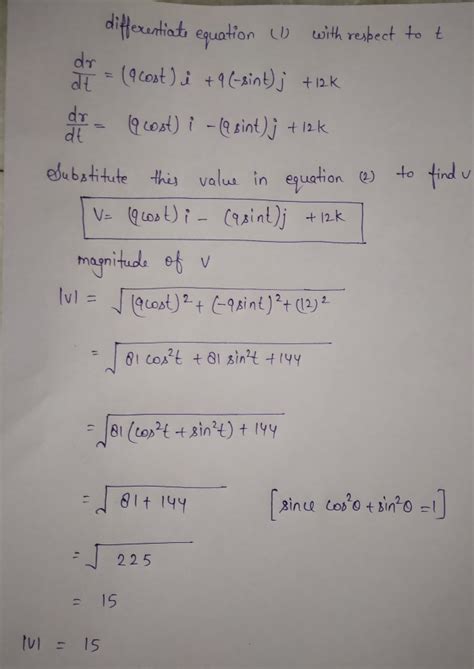 differentiate equation (1) with respect to t
dr/dt = (9cost) i + 9(-sint)j + 12k
dr/dt = (9cost) i - (9sint)j + 12k
Substitute this value in equation (2) to find v
V= (9cost) i - (9sint)j + 12k
magnitude of v
|v| = √(9cost)²+ (-9sint)²+(12)²
= √81 cos²t + 81 sin²t + 144
= √81 (cos²t + sin²t) + 144
= √81 + 144 [since cos²θ + sin²θ =1]
= √225
= 15
|v| = 15